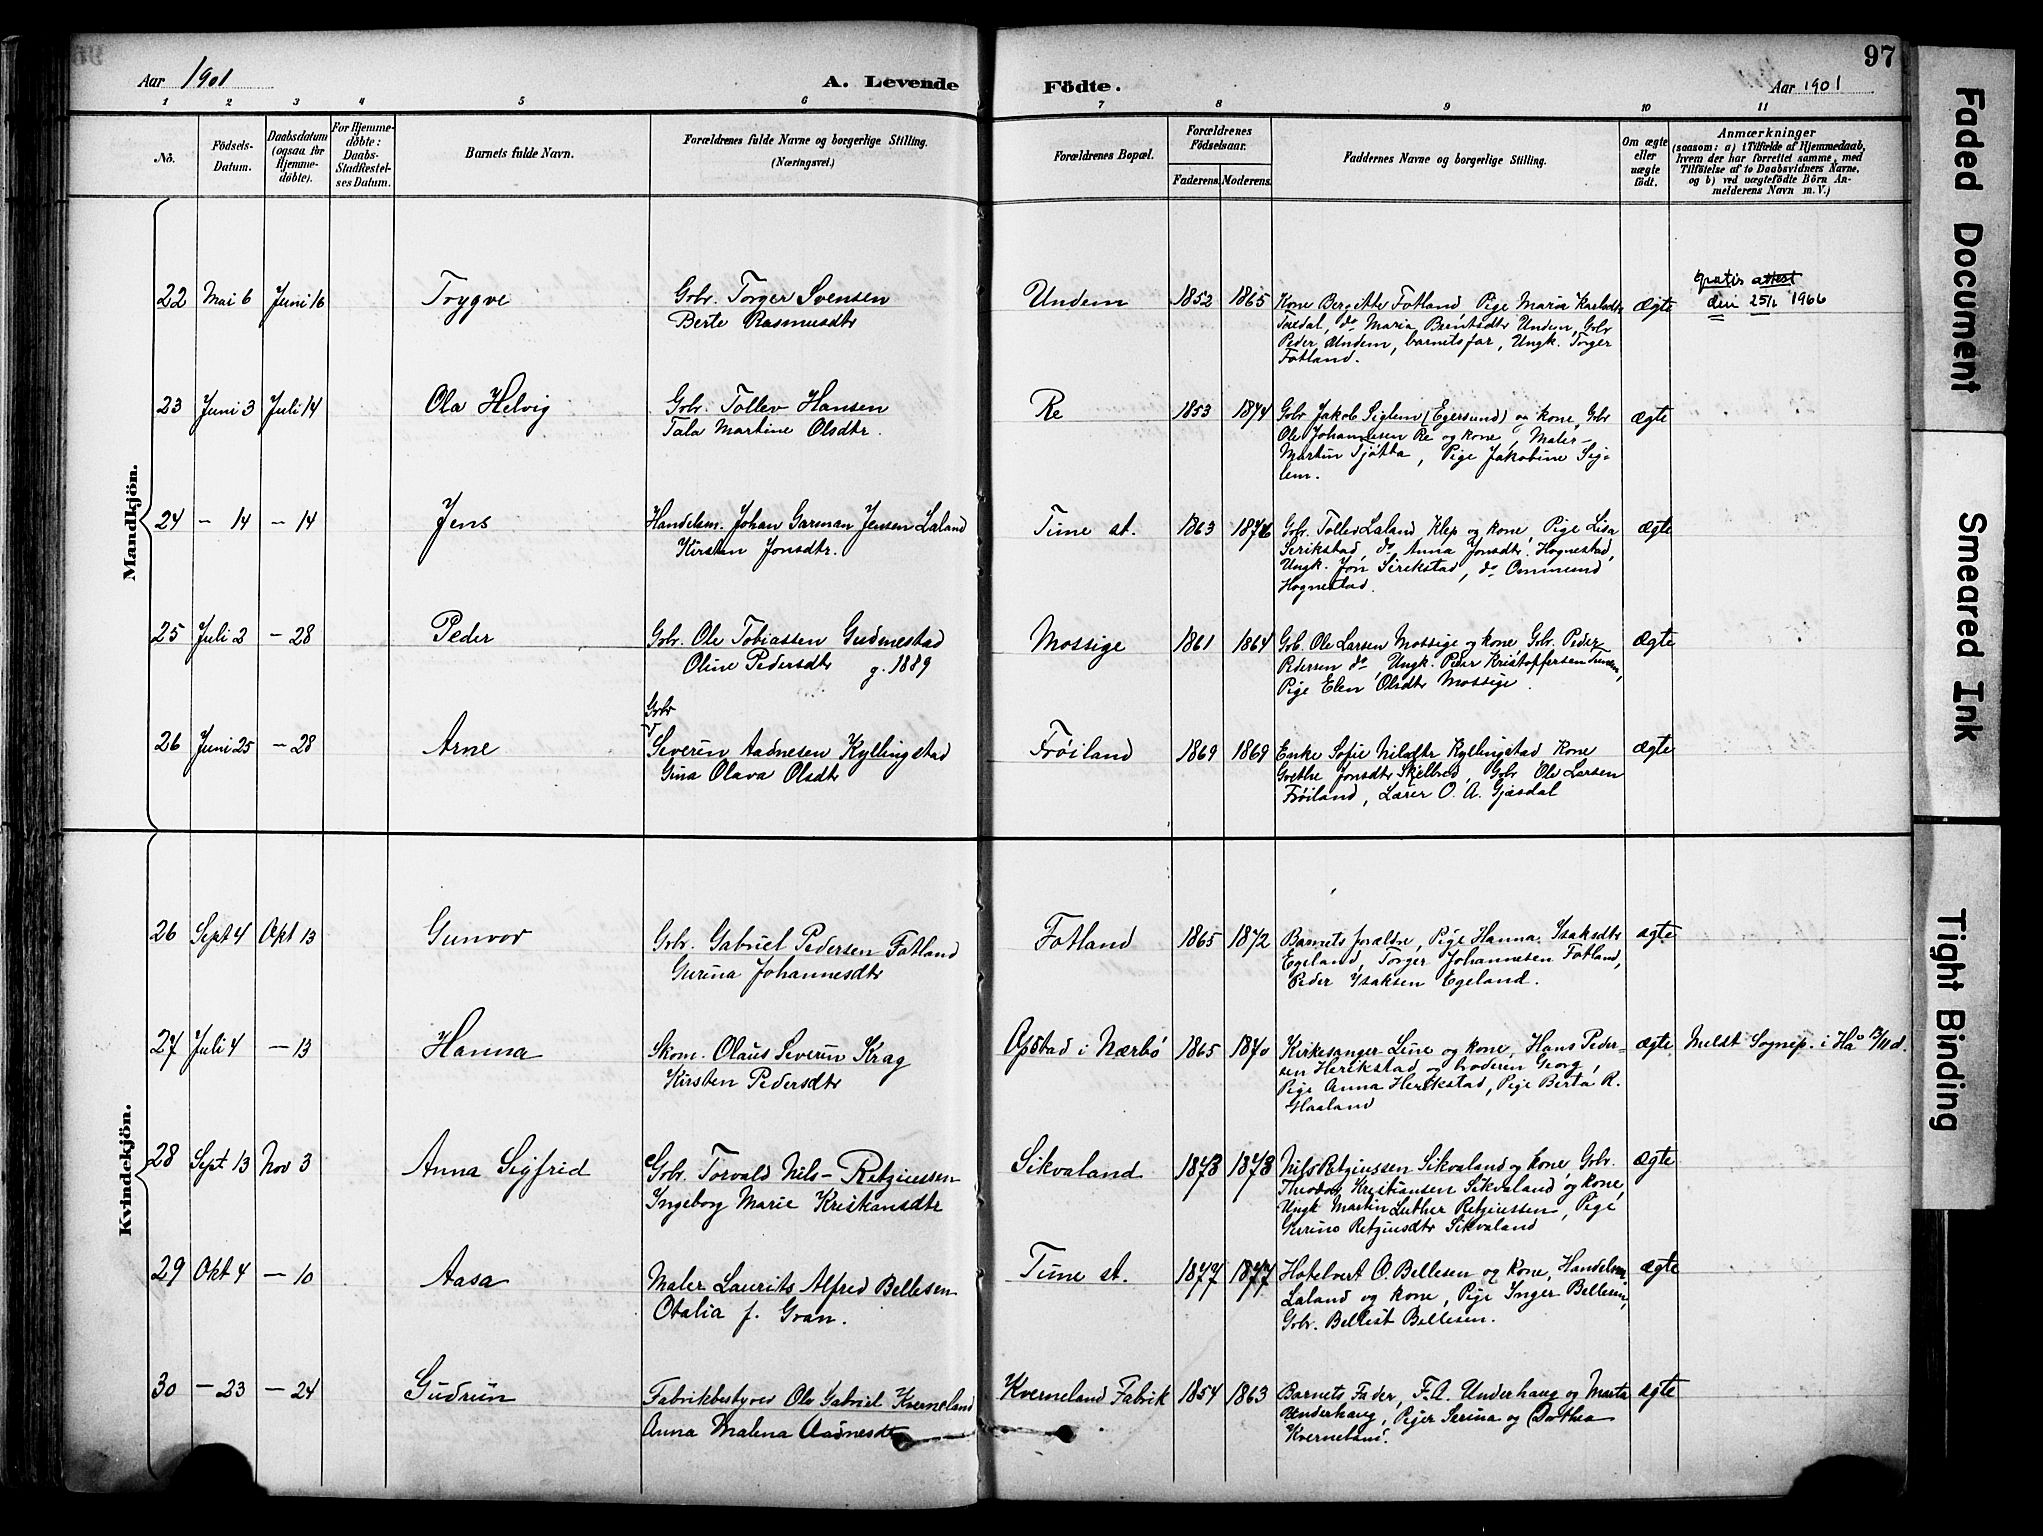 Aar 1901
A. Levende
Födte.
Aar 1901
97
1 2 3 4 5 6 7 8 9 10 11
No.
Födsels-
Datum.
Daabsdatum
(ogsaa for
Hjemme-
döbte).
For Hjemme-
döbte:
Daabs-
Stadfæstel-
ses Datum.
Barnets fulde Navn.
Forældrenes fulde Navne og borgerlige Stilling.
(Næringsvei.)
Forældrenes Bopæl.
Forældrenes
Födselsaar.
Faderens. Moderens.
Faddernes Navne og borgerlige Stilling.
Om ægte
eller
uægte
födt.
Anmærkninger
(saasom: a) i Tilfælde af Hjemmedaab,
hvem der har forrettet samme, med
Tilföielse af to Daabsvidners Navne,
og b) ved uægtefödte Börn An-
melderens Navn m. V.)
Mandkjön.
22 Mai 6 Juni 16 Trygve
Gbr. Torger Svensen
Berte Rasmusdtr
Undem 1852 1865
Kone Bergitte Fotland, Pige Maria Karlsdtr
Toredal, do Maria Berntsdtr Undem, Gbr
Peder Undem, barnets far, Ungk. Torger
Fotland.
ægte
gratis attest
den 25/2 1966
23 Juni 3 Juli 14 Ola Helvig
Gbr. Tollev Hansen
Tala Martine Olsdtr.
Re 1853 1874
Gbr Jakob Siglem (Egersund) og kone, Gbr
Ole Johannesen Re og kone, Maler
Martin Tjötta, Pige Jakobine Sig-
lem.
ægte
24 - 14 - 14 Jens
Handelsm. Johan Garman Jensen Laland
Kirsten Jonsdtr.
Time st. 1863 1876
Gbr. Tollev Laland, Klep og kone, Pige Lisa
Serikstad, do Anna Jonsdtr. Hognestad,
Ungk. Jon Serikstad, do Ommund
Hognestad.
ægte
25 Juli 2 - 28 Peder
Gbr. Ole Tobiassen Gudmestad
Oline Pedersdtr g. 1889
Mossige 1861 1864
Gb. Ole Larsen Mossige og kone Gbr. Peder
Pedersen do, Ungk. Peder Kristoffersen Tunem,
Pige Elen Olsdtr Mossige.
ægte
26 Juni 25 - 28 Arne
Gbr
Severin Aadnesen Kyllingstad
Gina Olava Olsdtr
Fröiland 1869 1869
Enke Sofie Nilsdtr Kyllingstad Kone
Grethe Jonsdtr Skjelbred, Gbr Ole Larsen
Fröiland, Lærer O. A. Gjæsdal
ægte
Kvindekjön.
26 Sept 4 Okt 13 Gunvor
Gbr. Gabriel Pedersen Fotland
Gurina Johannesdtr
Fotland 1865 1872
Barnets forældre, Pige Hanna Isaksdtr
Egeland, Torger Johannesen Fotland,
Peder Isaksen Egeland.
ægte
27 Juli 4 - 13 Hanna
Skom. Olaus Severin Krag
Kirsten Pedersdtr
Opstad i Nærbö 1865 1870
Kirkesanger Line og kone, Hans Peder-
sen Herikstad og broderen Georg,
Pige Anna Herikstad, Pige Berta R.
Haaland
ægte
Meldt Sognep. i Hå 13/11 d.
28 Sept 13 Nov 3 Anna Sigfrid
Gbr. Torvald Nils-Retziussen
Ingeborg Marie Kristiansdtr
Sikvaland 1873 1878
Nils Retziussen Sikvaland og kone, Gbr.
Theodor Kristiansen Sikvaland og kone,
Ungk Martin Luther Retziussen, Pige
Serina Retziusdtr Sikvaland
ægte
29 Okt 4 - 10 Aasa
Maler Laurits Alfred Bellesen
Otalia f. Gran.
Time st. 1877 1877
Hotelvert O. Bellesen og kone, Handelsm.
Laland og kone, Pige Inger Bellesen,
Gbr. Bellest Bellesen.
ægte
30 - 23 - 24 Gudrun
Fabrikbestyrer Ole Gabriel Kverneland
Anna Malena Aadnesdtr
Kverneland Fabrik 1854 1863
Barnets Fader, F. A. Underhaug og Marta
Underhaug, Piger Serina og Dorthea
Kverneland.
ægte
Faded Document
Smeared Ink
Tight Binding